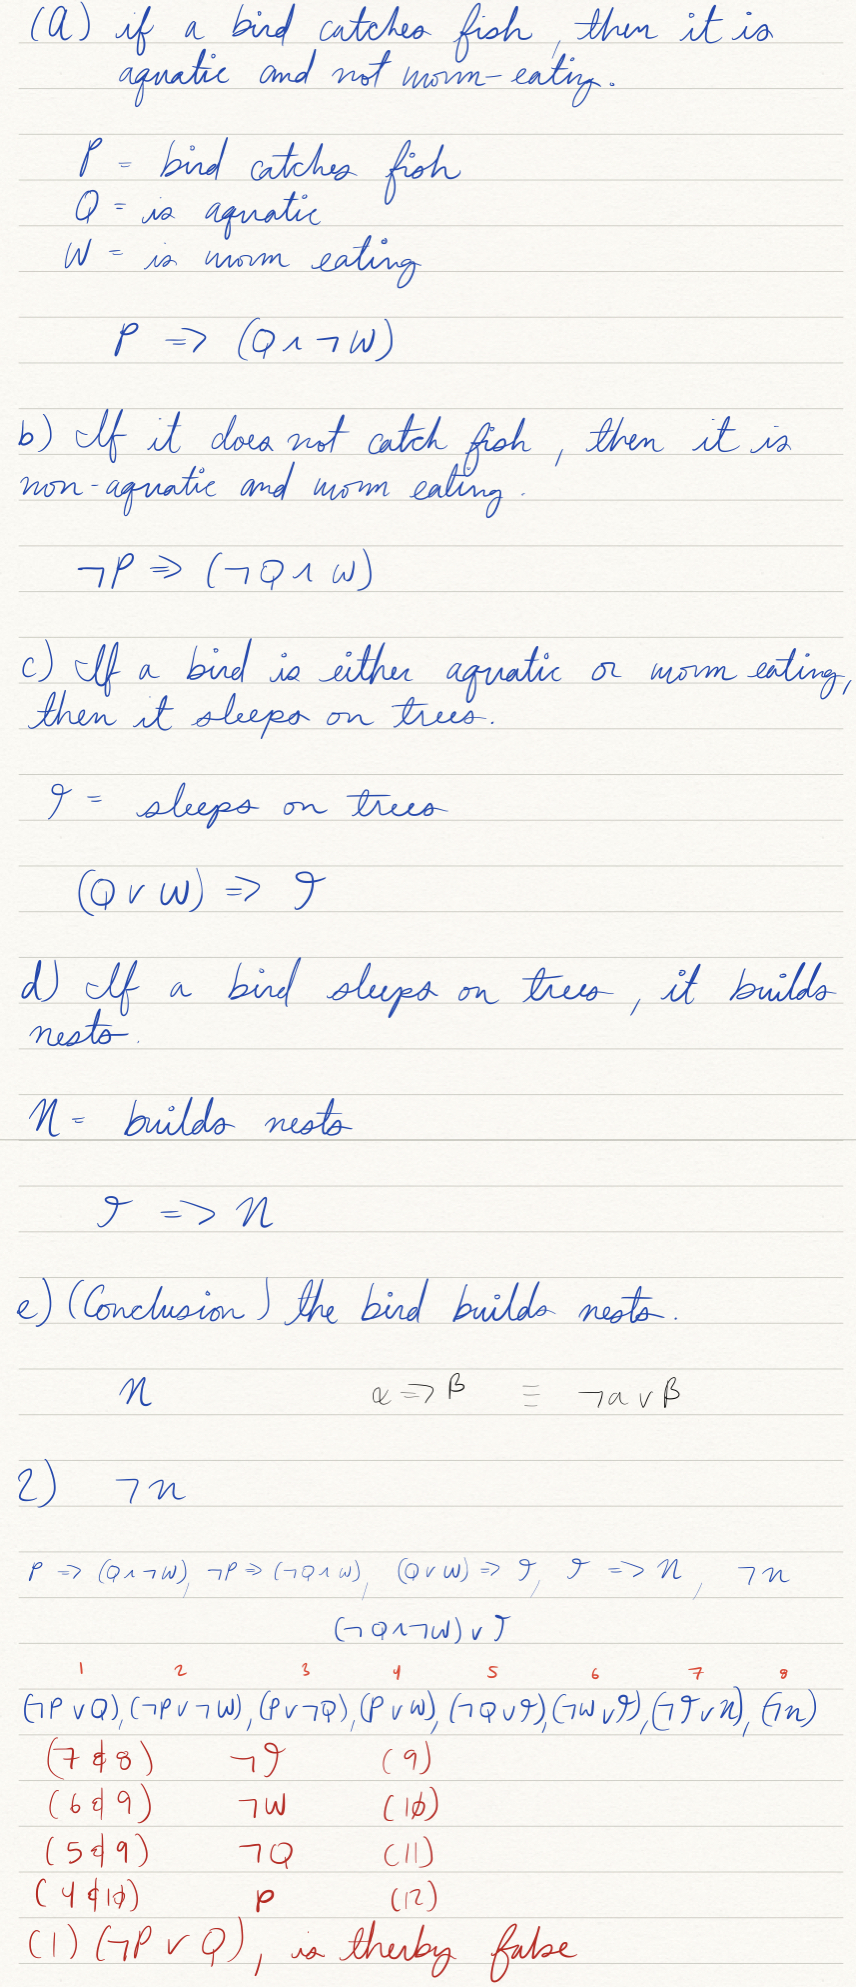 (a) if a bird catches fish, then it is
aquatic and not worm-eating.
P = bird catches fish
Q = is aquatic
W = is worm eating
P => (Q ∧ ¬W)
b) If it does not catch fish, then it is
non-aquatic and worm eating.
¬P => (¬Q ∧ W)
c) If a bird is either aquatic or worm eating,
then it sleeps on trees.
T = sleeps on trees
(Q ∨ W) => T
d) If a bird sleeps on trees, it builds
nests.
N = builds nests
T => N
e) (Conclusion) the bird builds nests.
N α => β ≡ ¬α ∨ β
2) ¬N
P => (Q ∧ ¬W), ¬P => (¬Q ∧ W), (Q ∨ W) => T, T => N, ¬N
(¬Q ∧ ¬W) ∨ T
1 2 3 4 5 6 7 8
(¬P ∨ Q), (¬P ∨ ¬W), (P ∨ ¬Q), (P ∨ W), (¬Q ∨ T), (¬W ∨ T), (¬T ∨ N), (¬N)
(7 & 8) ¬T (9)
(6 & 9) ¬W (10)
(5 & 9) ¬Q (11)
(4 & 10) P (12)
(1) (¬P ∨ Q), is therby false